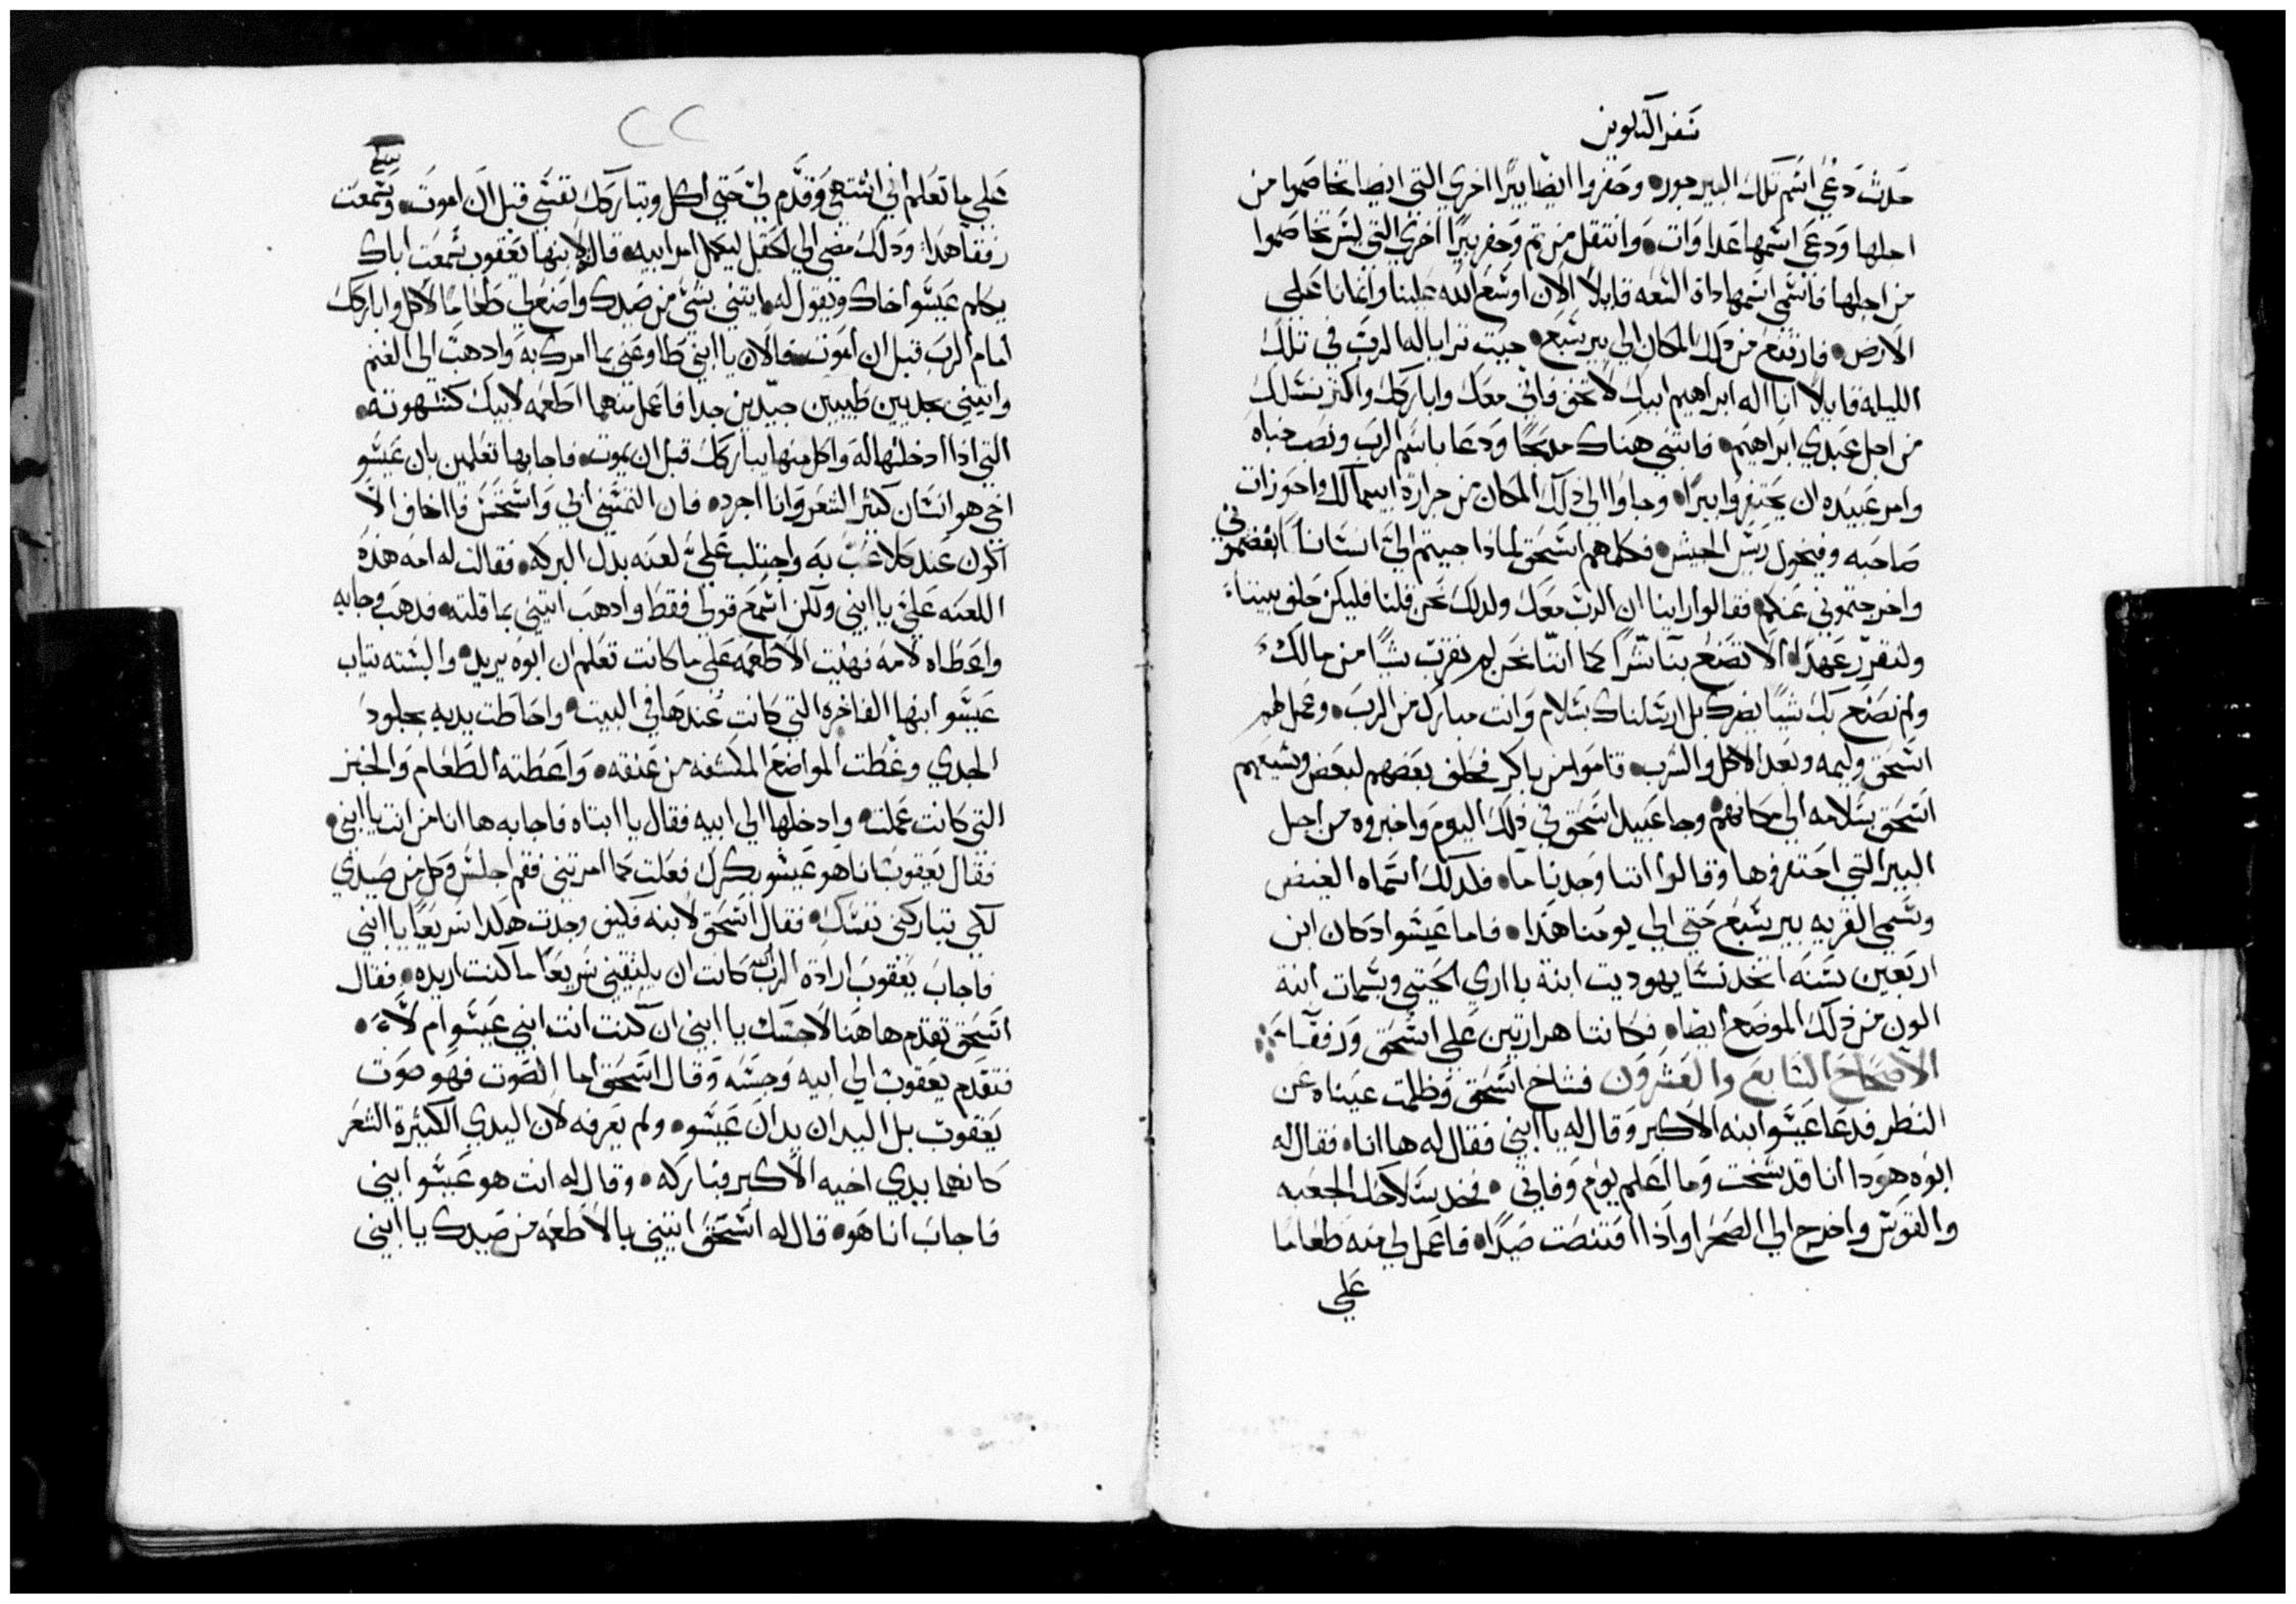 سفر التكوين
حدث دعي اسم تلك البير جور. وحفروا ايضا بيرا اخري التي ايضا تخاصموا من
اجلها ودعي اسمها عداوات. وانتقل من تم وحفر بيرا اخري التي ليس تخاصموا
من اجلها فاسمي اسمها داة السعه قايلا الان اوسع الله علينا وانمانا علي
الارض. فارتفع من دلك المكان الي بير سبع. حيت ترايا له الرب في تلك
الليله قايلا انا اله ابراهيم ابيك لا تخف فاني معك واباركك واكتر نسلك
من اجل عبدي ابراهيم. فابتني هناك مدبحا ودعا باسم الرب ونصب خباه
وامر عبيده ان يحتفروا بيرا. وجاوا الي ذلك المكان من جرارة ابيمالك واحوزات
صاحبه وفيخول ريس الجيش. فكلمهم اسحق لماذا جيتم الي انسانا ابغضتموني
واخرجتموني عنكم. فقالوا راينا ان الرب معك ولدلك نحن قلنا فليكن حلف بيننا
ولنقرر عهدا. الا تصنع بنا شرا كما اننا نحن لم نقرب شيا من مالك
ولم نصنع بك شيا يضرك بل ارسلناك بسلام وانت مبارك من الرب. وعمل لهم
اسحق وليمه وبعد الاكل والشرب. قاموا من باكر فحلف بعضهم لبعض وشيعهم
اسحق بسلامه الي مكانهم. وجا عبيد اسحق في ذلك اليوم واخبروه من اجل
البير التي احتفروها وقالوا اننا وجدنا ما. فلدلك اسماه الفيض
وسمي القريه بير سبع حتي الي يومنا هدا. فاما عيسو اد كان ابن
اربعين سنه اتخد نسا يهوديت ابنة بااري الحيتي وبسمات ابنة
الون من ذلك الموضع ايضا. فكانتا مرارتين علي اسحق ورفقا
الاصحاح السابع والعشرون فشاخ اسحق وظلمت عيناه عن
النظر فدعا عيسو ابنه الاكبر وقال له يا ابني فقال له ها انا. فقال له
ابوه هودا انا قد شخت وما اعلم يوم وفاتي. فخد سلاحك الجعبه
والقوس واخرج الي الصحرا واذا اقتنصت صيدا. فاعمل لي منه طعاما
علي
٢٢
علي ما تعلم اني اشتهي وقدم لي حتي اكل وتباركك نفسي قبل ان اموت. وسمعت
رفقا هدا. ودلك مضي الي الحقل ليكمل امر ابيه. قال لابنها يعقوب سمعت اباك
يكلم عيسو اخاك ويقول له. ايتني بشي من صيدك واصنع لي طعاما لاكل واباركك
امام الرب قبل ان اموت. فالان يا ابني طاوعني بما امرك به وادهب الي الغنم
وايتيني بجديين طيبين جيدين جدا فاعمل منهما اطعمه لابيك كشهوته.
التي اذا ادخلتها له واكل منها يباركك قبل ان يموت. فاجابها تعلمين بان عيسو
اخي هو انسان كتير الشعر وانا اجرد. فان التمسني ابي واستحس فااخاف الا
اكون عنده كلاعب به واجتلب علي لعنه بدل البركه. فقالت له امه هذه
اللعنه علي يا ابني ولكن اسمع قولي فقط وادهب ايتيني بما قلته. فدهب وجابه
واعطاه لامه فهيت الاطعمه علي ما كانت تعلم ان ابوه يريد. والبسته تياب
عيسو ابنها الفاخره التي كانت عندها في البيت. واحاطت يديه بجلود
الجدي وغطت المواضع المكشفه من عنقه. واعطته الطعام والخبز
التي كانت عملت. وادخلها الي ابيه فقال يا ابتاه فاجابه ها انا من انت يا ابني.
فقال يعقوب انا هو عيسو بكرك فعلت كما امرتني فقم اجلس وكل من صيدي
لكي تباركني نفسك. فقال اسحق لابنه فكيف وجدت هكدا سريعا يا ابني
فاجاب يعقوب ارادة الرب الله كانت ان يلتقيني سريعا ما كنت اريده. فقال
اسحق تقدم هاهنا لاجسك يا ابني ان كنت انت ابني عيسو ام لا.
فتقدم يعقوب الي ابيه وجسه وقال اسحق اما الصوت فهو صوت
يعقوب بل اليدان يدان عيسو. ولم يعرفه لان اليدي الكثيرة الشعر
كانهما بيدي اخيه الاكبر فباركه. وقال له انت هو عيسو ابني
فاجاب انا هو. قال له اسحق ايتيني بالاطعمه من صيدك يا ابني